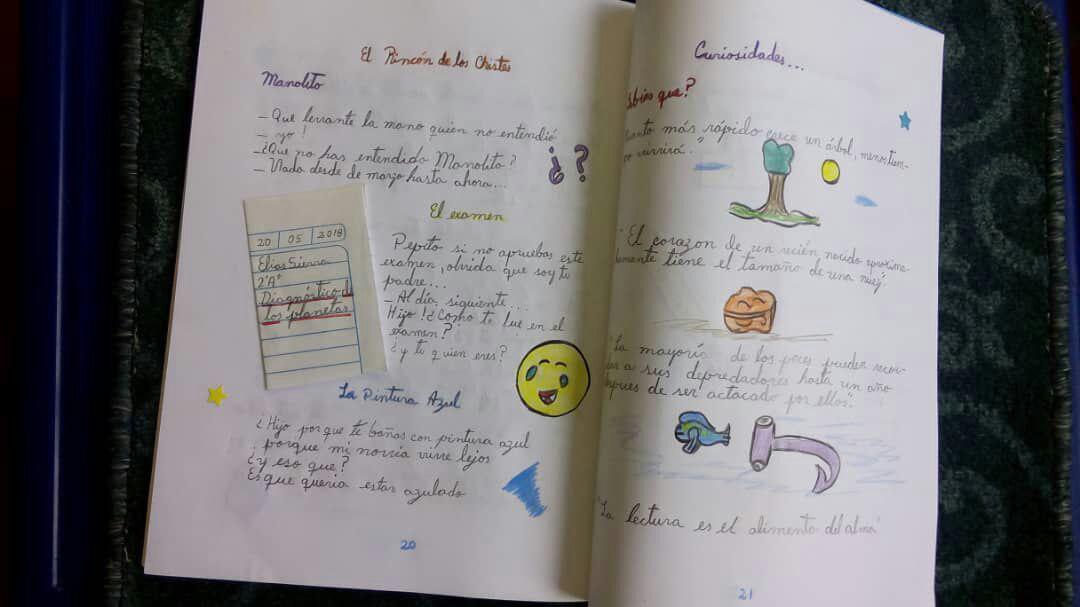 El Rincón de los Chistes
Manolito
- Que levante la mano quien no entendió
- yo!
- ¿Que no has entendido Manolito?
- Nada desde de marzo hasta ahora...
¿?
El examen
20 05 2018
Elias Sierra
2°A°
Diagnóstico de
los planetas
Pepito si no apruebas este
examen, olvida que soy tu
padre...
- Al día siguiente...
Hijo! ¿Como te fue en el
examen?
¿y tu quien eres?
La Pintura Azul
¿Hijo por que te bañas con pintura azul
porque mi novia vive lejos
¿y eso que?
Es que queria estar azulado
20
Curiosidades...
abias que?
uanto más rápido crece un árbol, menos tiem-
po vivirá."
"El corazon de un recién nacido aproxima-
damente tiene el tamaño de una nuez"
"La mayoría de los peces pueden recor-
dar a sus depredadores hasta un año
depues de ser actacado por ellos".
"La lectura es el alimento del alma"
21